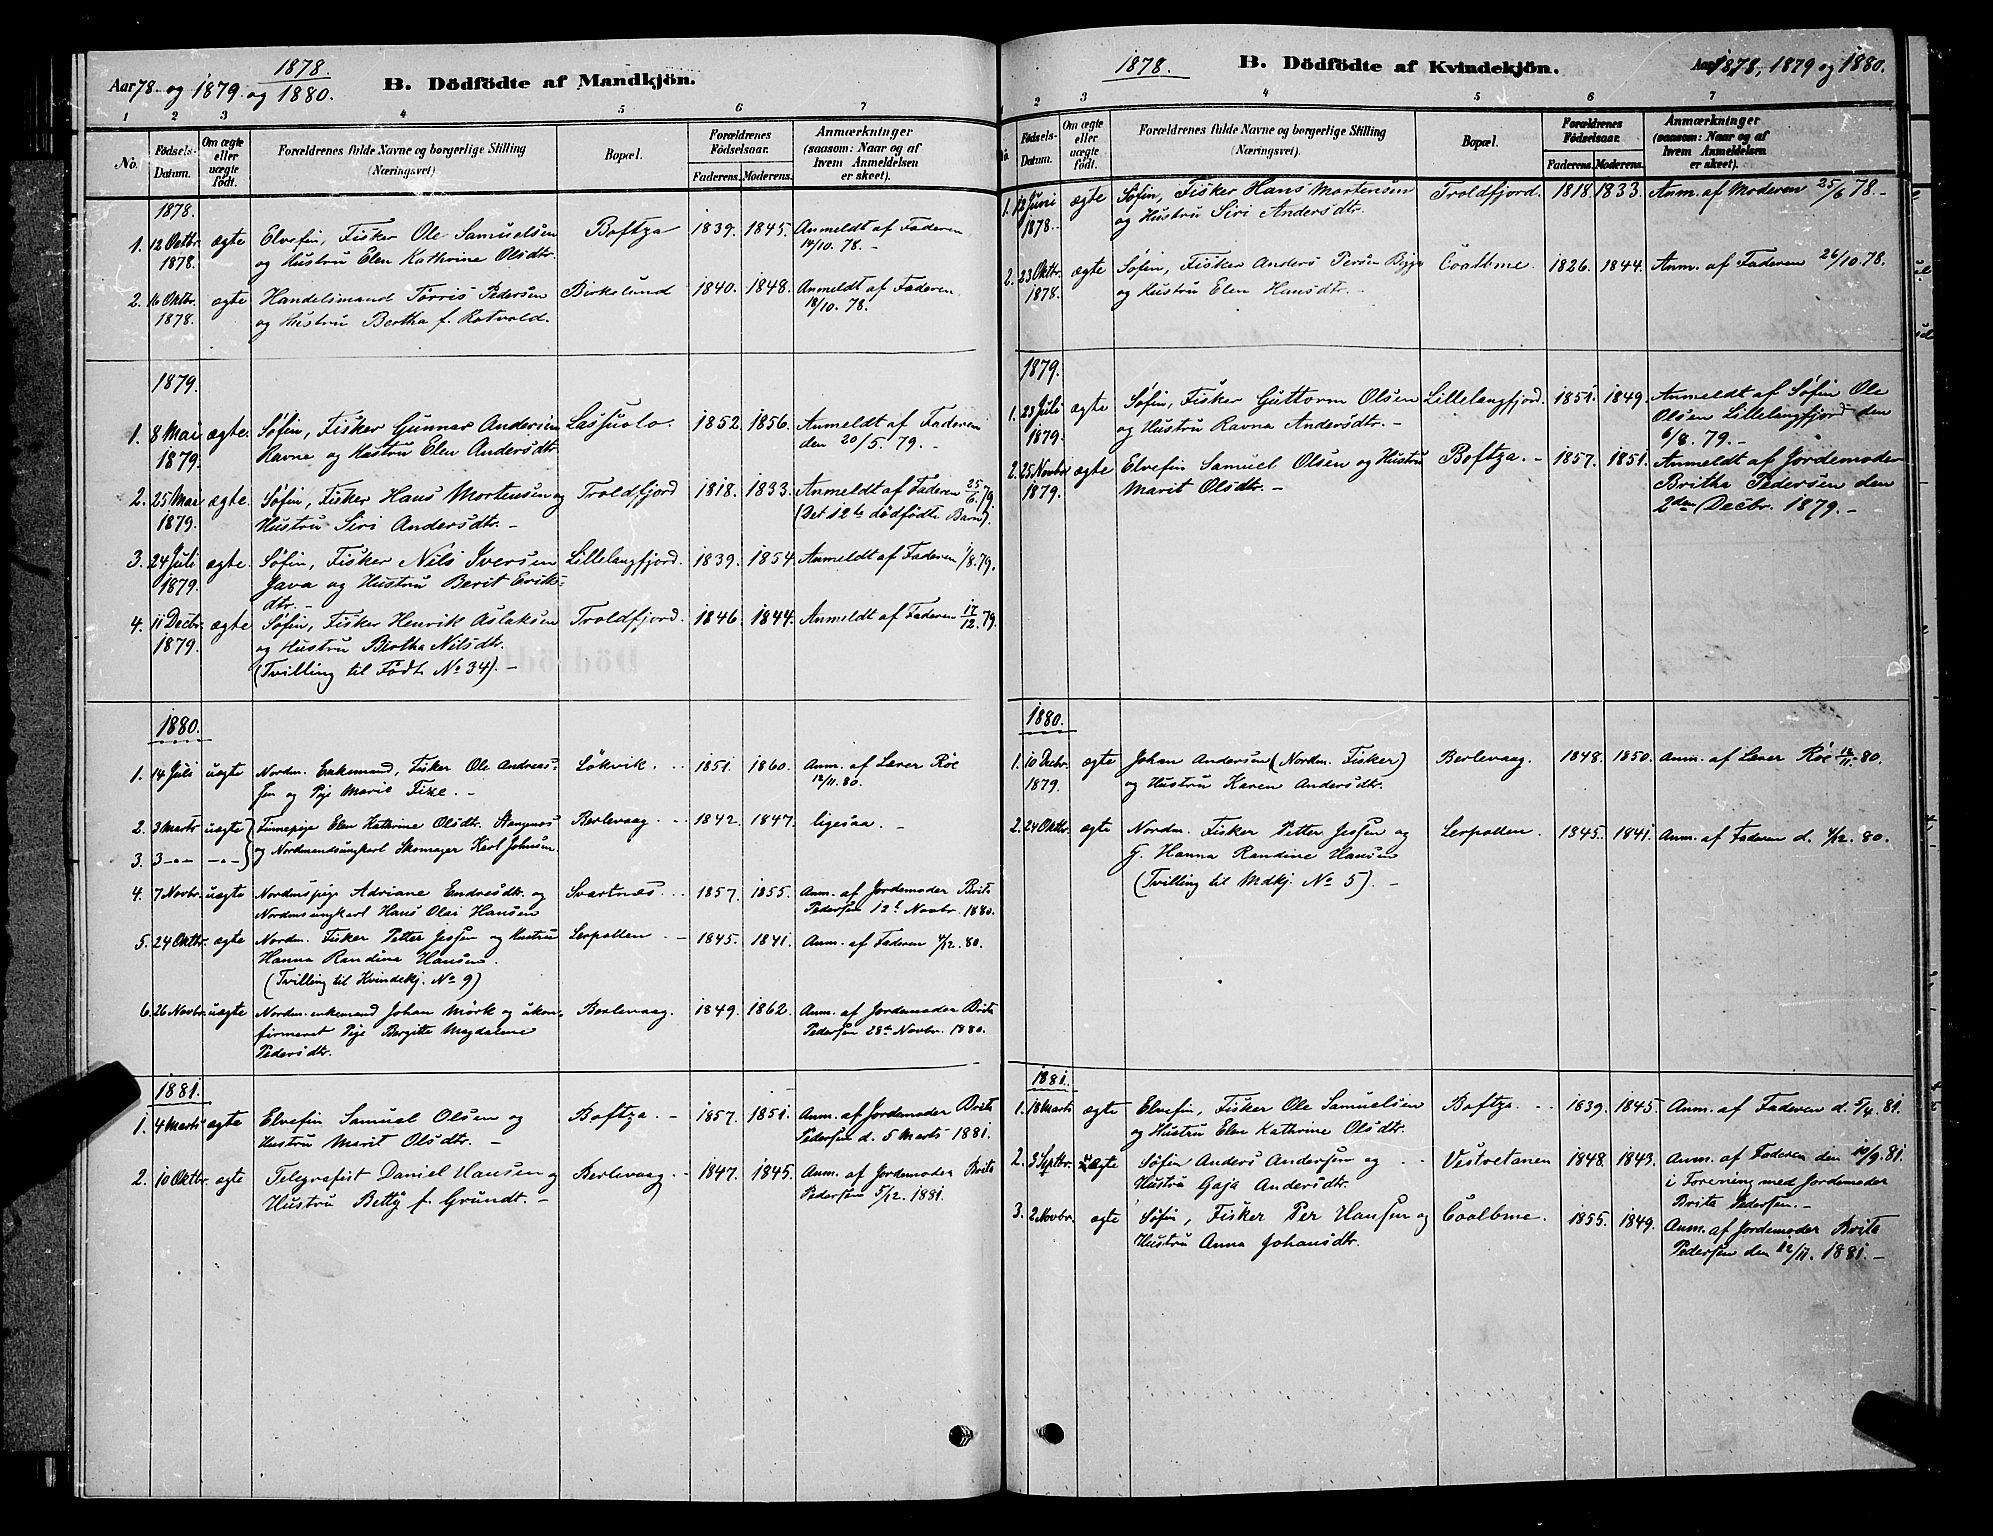 1878
Aar 78. og 1879. og 1880. B. Dödfödte af Mandkjön.
1 2 3 4 5 6 7
No. Födsels-Datum. Om ægte eller uægte födt. Forældrenes fulde Navne og borgerlige Stilling (Næringsvei). Bopæl. Forældrenes Födselsaar. Faderens. Moderens. Anmærkninger (saasom: Naar og af hvem Anmeldelsen er skeet).
1878.
1. 12 Octbr. ægte Elvefin, Fisker Ole Samuelsen Boftza 1839. 1845. Anmeldt af Faderen
1878. og Hustru Elen Kathrine Olsdtr. 14/10. 78. -
2. 16 Oktbr. ægte Handelsmand Torris Pedersen Birkelund 1840. 1848. Anmeldt af Faderen
1878. og Hustru Bertha f. Rotvold. 18/10. 78.
1879.
1. 8 Mai ægte. Søfin, Fisker Gunnar Andersen 1852 1856. Anmeldt af Faderen
1879. Ravne og Hustru Elen Andersdtr. den 20/5. 79. -
2. 25 Mai ægte. Søfin, Fisker Hans Mortensen og Troldfjord 1818. 1833. Anmeldt af Faderen 25/6. 79.
1879. Hustru Siri Andersdtr. - (Det 12te dödfödte Barn).
3. 24 Juli ægte. Søfin, Fisker Nils Iversen Lillelangfjord. 1839. 1854. Anmeldt af Faderen 1/8. 79.
1879. Java og Hustru Berit Eriks-
dtr. -
4. 11 Decbr. ægte Søfin, Fisker Henrik Aslaksen Troldfjord. 1846. 1844. Anmeldt af Faderen 17/12. 79.
1879. og Hustru Birtha Nilsdtr.
(Tvilling til Födt No 34). -
1880.
1. 14 Juli uægte Nordm. Enkemand, Fisker Ole Andreas- Løkvik. 1851. 1860. Anm. af Lærer Röe
sen og Pige Marie Fixe. - 12/11. 80.
2. 3 Marts uægte Finnepige Elen Kathrine Olsdtr. Stangnes Berlevaag. 1842. 1847. ligesaa. -
3. 3 -"- -"- og Nordmandsungkarl Skomager Karl Johnsen.
4. 7 Novbr. uægte Nordmspige Adriane Endresdtr. og Svartnes. 1857. 1855. Anm. af Jordemoder Brita
Nordmsungkarl Hans Olai Hansen Pedersen 12t Novbr. 1880.
5. 24 Oktbr. ægte Nordm. Fisker Petter Jessen og Hustru Lerpollen 1845. 1841. Anm. af Faderen 4/12. 80.
Hanna Randine Hansen.
(Tvilling til Kvindekj. No 9)
6. 26 Novbr. uægte Nordm. enkemand Johan Mörk og ukon- Berlevaag. 1849. 1862. Anm. af Jordemoder Brita
firmeret Pige Bergitte Magdalene Pedersen 28de Novbr. 1880.
Pedersdtr.
1881.
1. 4 Marts ægte Elvefin Samuel Olsen og Boftza. 1857. 1851. Anm. af Jordemoder Brita
Hustru Marit Olsdtr. - Pedersen d. 5 Marts 1881.
2. 10 Oktbr. ægte Telegrafist Daniel Hansen og Berlevaag. 1847. 1845. Anm. af Jordemoder Brita
Hustru Betty f. Grundt. - Pedersen 5/12. 1881.
1878. B. Dödfödte af Kvindekjön. Aar 1878, 1879 og 1880.
1 2 3 4 5 6 7
No. Födsels-Datum. Om ægte eller uægte födt. Forældrenes fulde Navne og borgerlige Stilling (Næringsvei). Bopæl. Forældrenes Födselsaar. Faderens. Moderens. Anmærkninger (saasom: Naar og af hvem Anmeldelsen er skeet).
1. 12 Juni ægte Søfin, Fisker Hans Mortensen Troldfjord. 1818. 1833. Anm. af Moderen 25/6 78. -
1878. og Hustru Siri Andersdtr.
2. 23 Oktbr. ægte Søfin, Fisker Anders Persen 1826. 1844. Anm. af Faderen 26/10. 78.
1878. og Hustru Elen Hansdtr. -
1879.
1. 23 Juli ægte Søfin, Fisker Guttorm Olsen Lillelangfjord. 1851. 1849. Anmeldt af Søfin Ole
1879. og Hustru Ravna Andersdtr. - Olsen Lillelangfjord den
6/8. 79. -
2. 25 Novbr. ægte Elvefin Samuel Olsen og Hustru Boftza. - 1857. 1851. Anmeldt af Jordemoder
1879. Marit Olsdtr. - Britha Pedersen den
2den Decbr. 1879. -
1880.
1. 10 Decbr. ægte Johan Andersen (Nordm. Fisker) Berlevaag. 1848. 1850. Anm. af Lærer Röe 12/11. 80.
1879. og Hustru Karen Andersdtr.
2. 24 Oktbr. ægte Nordm. Fisker Petter Jessen og Lerpollen. 1845. 1841. Anm. af Faderen d. 4/12. 80.
G. Hanna Randine Hansen
(Tvilling til Mdkj. No 5). -
1881.
1. 18 Marts ægte Elvefin, Fisker Ole Samuelsen Boftza. 1839. 1845. Anm. af Faderen d. 5/4. 81.
og Hustru Elen Kathrine Olsdtr.
2. 3 Septbr. ægte Søfin Anders Andersen og Vestretanen 1848. 1843. Anm. af Faderen den 10/9. 81.
Hustru Gaja Andersdtr. i Forening med Jordemoder
Brita Pedersen. -
3. 2 Novbr. ægte Søfin, Fisker Per Hansen og 1855. 1849. Anm. af Jordemoder Brita
Hustru Anna Johansdtr. Pedersen den 12/11. 1881. -